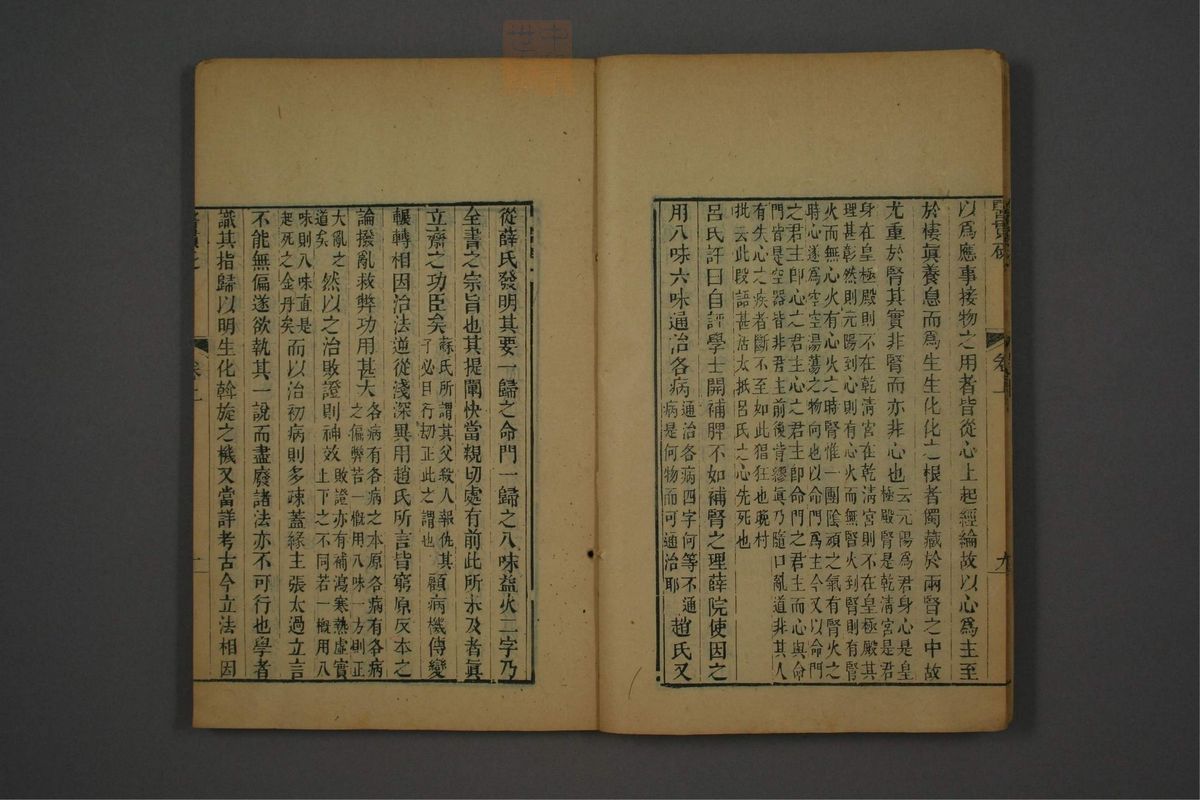 醫貫砭
卷上
九
以爲應事接物之用者皆從心上起經綸故以心爲主至
於棲眞養息而爲生生化化之根者獨藏於兩腎之中故
尤重於腎其實非腎而亦非心也
云元陽爲君身心是皇
極殿腎是乾淸宮是君
身在皇極殿則不在乾淸宮在乾淸宮則不在皇極殿其
理甚彰然則元陽到心則有心火而無腎火到腎則有腎
火而無心火有心火之時腎惟一團陰頑之氣有腎火之
時心遂爲空空湯蕩之物向也以命門爲主今又以命門
之君主卽心之君主心之君主卽命門之君主而心與命
門皆是空器皆非君主前後背繆眞乃隨口亂道非其人
有失心之疾者斷不至如此猖狂也晚村
批云此段語甚活太抵呂氏之心先死也
呂氏評曰自評學士開補脾不如補腎之理薛院使因之
用八味六味通治各病
通治各病四字何等不通
病是何物而可通治耶
趙氏又
從薛氏發明其要一歸之命門一歸之八味益火二字乃
全書之宗旨也其提闡快當親切處有前此所未及者眞
立齋之功臣矣
蘇氏所謂其父殺人報仇其
子必且行刧正此之謂也
顧病機傳變
輾轉相因治法逆從淺深異用趙氏所言皆窮原反本之
論撥亂救弊功用甚大
各病有各病之本原各病有各病
之偏弊若一槪用八味一方則正
大亂之
道矣
然以之治敗證則神效
敗證亦有補瀉寒熱虛實
上下之不同若一槪用八
味則八味直是
起死之金丹矣
而以治初病則多疎蓋緣主張太過立言
不能無偏遂欲執其一說而盡廢諸法亦不可行也學者
識其指歸以明生化斡旋之機又當詳考古今立法相因